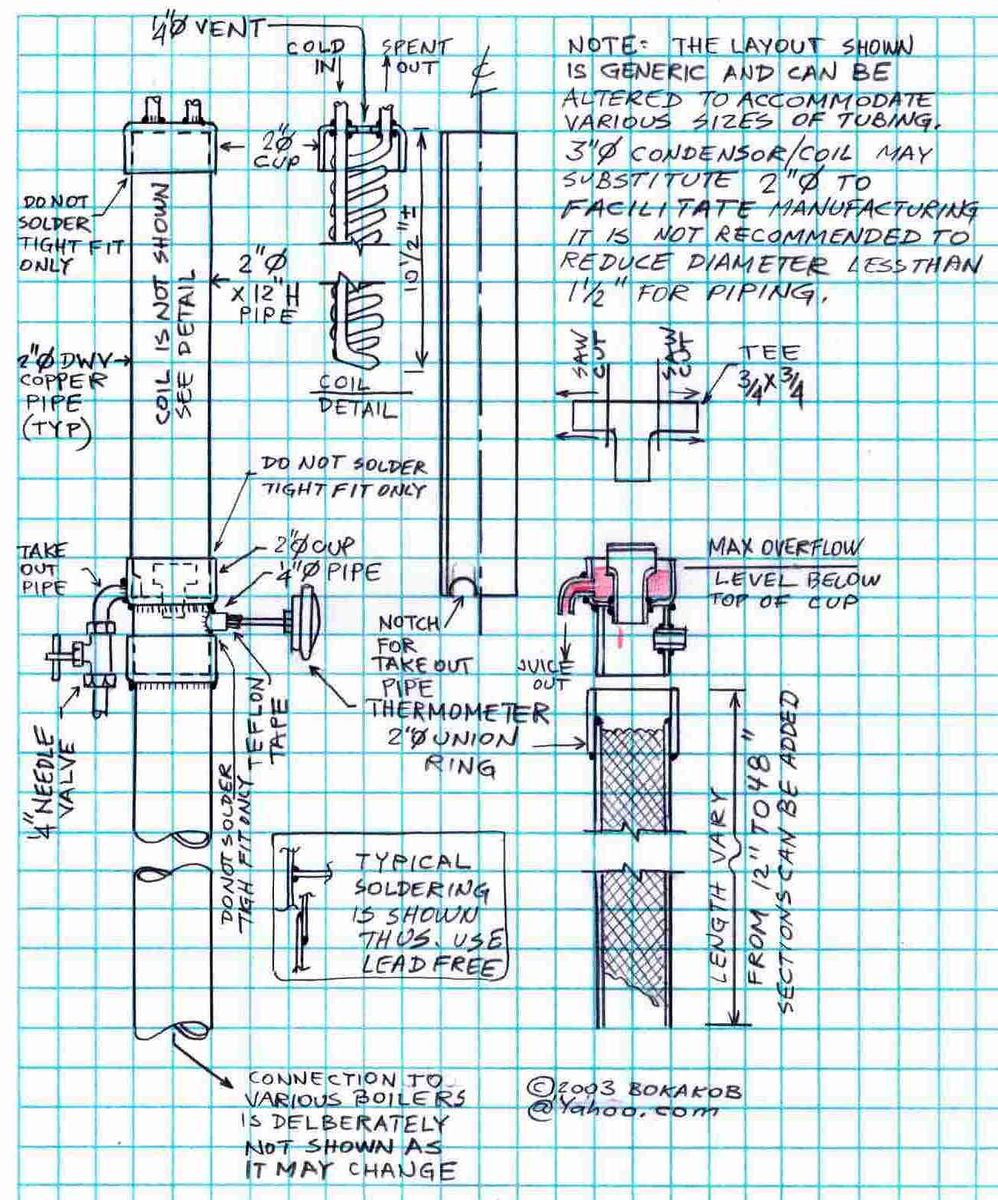 1/4"Ø VENT
COLD
IN
SPENT
OUT
℄
NOTE: THE LAYOUT SHOWN
IS GENERIC AND CAN BE
ALTERED TO ACCOMMODATE
VARIOUS SIZES OF TUBING.
3"Ø CONDENSOR/COIL MAY
SUBSTITUTE 2"Ø TO
FACILITATE MANUFACTURING
IT IS NOT RECOMMENDED TO
REDUCE DIAMETER LESS THAN
1½" FOR PIPING.
2"Ø
CUP
DO NOT
SOLDER
TIGHT FIT
ONLY
COIL IS NOT SHOWN
SEE DETAIL
2"Ø
x 12"H
PIPE
10 1/2"±
COIL
DETAIL
2"Ø DWV
COPPER
PIPE
(TYP)
SAW
CUT
SAW
CUT
TEE
3/4 x 3/4
DO NOT SOLDER
TIGHT FIT ONLY
TAKE
OUT
PIPE
2"Ø CUP
1/4"Ø PIPE
MAX OVERFLOW
LEVEL BELOW
TOP OF CUP
NOTCH
FOR
TAKE OUT
PIPE
JUICE
OUT
THERMOMETER
2"Ø UNION
RING
TEFLON
TAPE
1/4" NEEDLE
VALVE
DO NOT SOLDER
TIGH FIT ONLY
LENGTH VARY
FROM 12" TO 48"
SECTIONS CAN BE ADDED
TYPICAL
SOLDERING
IS SHOWN
THUS. USE
LEAD FREE
CONNECTION TO
VARIOUS BOILERS
IS DELBERATELY
NOT SHOWN AS
IT MAY CHANGE
©2003 BOKAKOB
@Yahoo.com